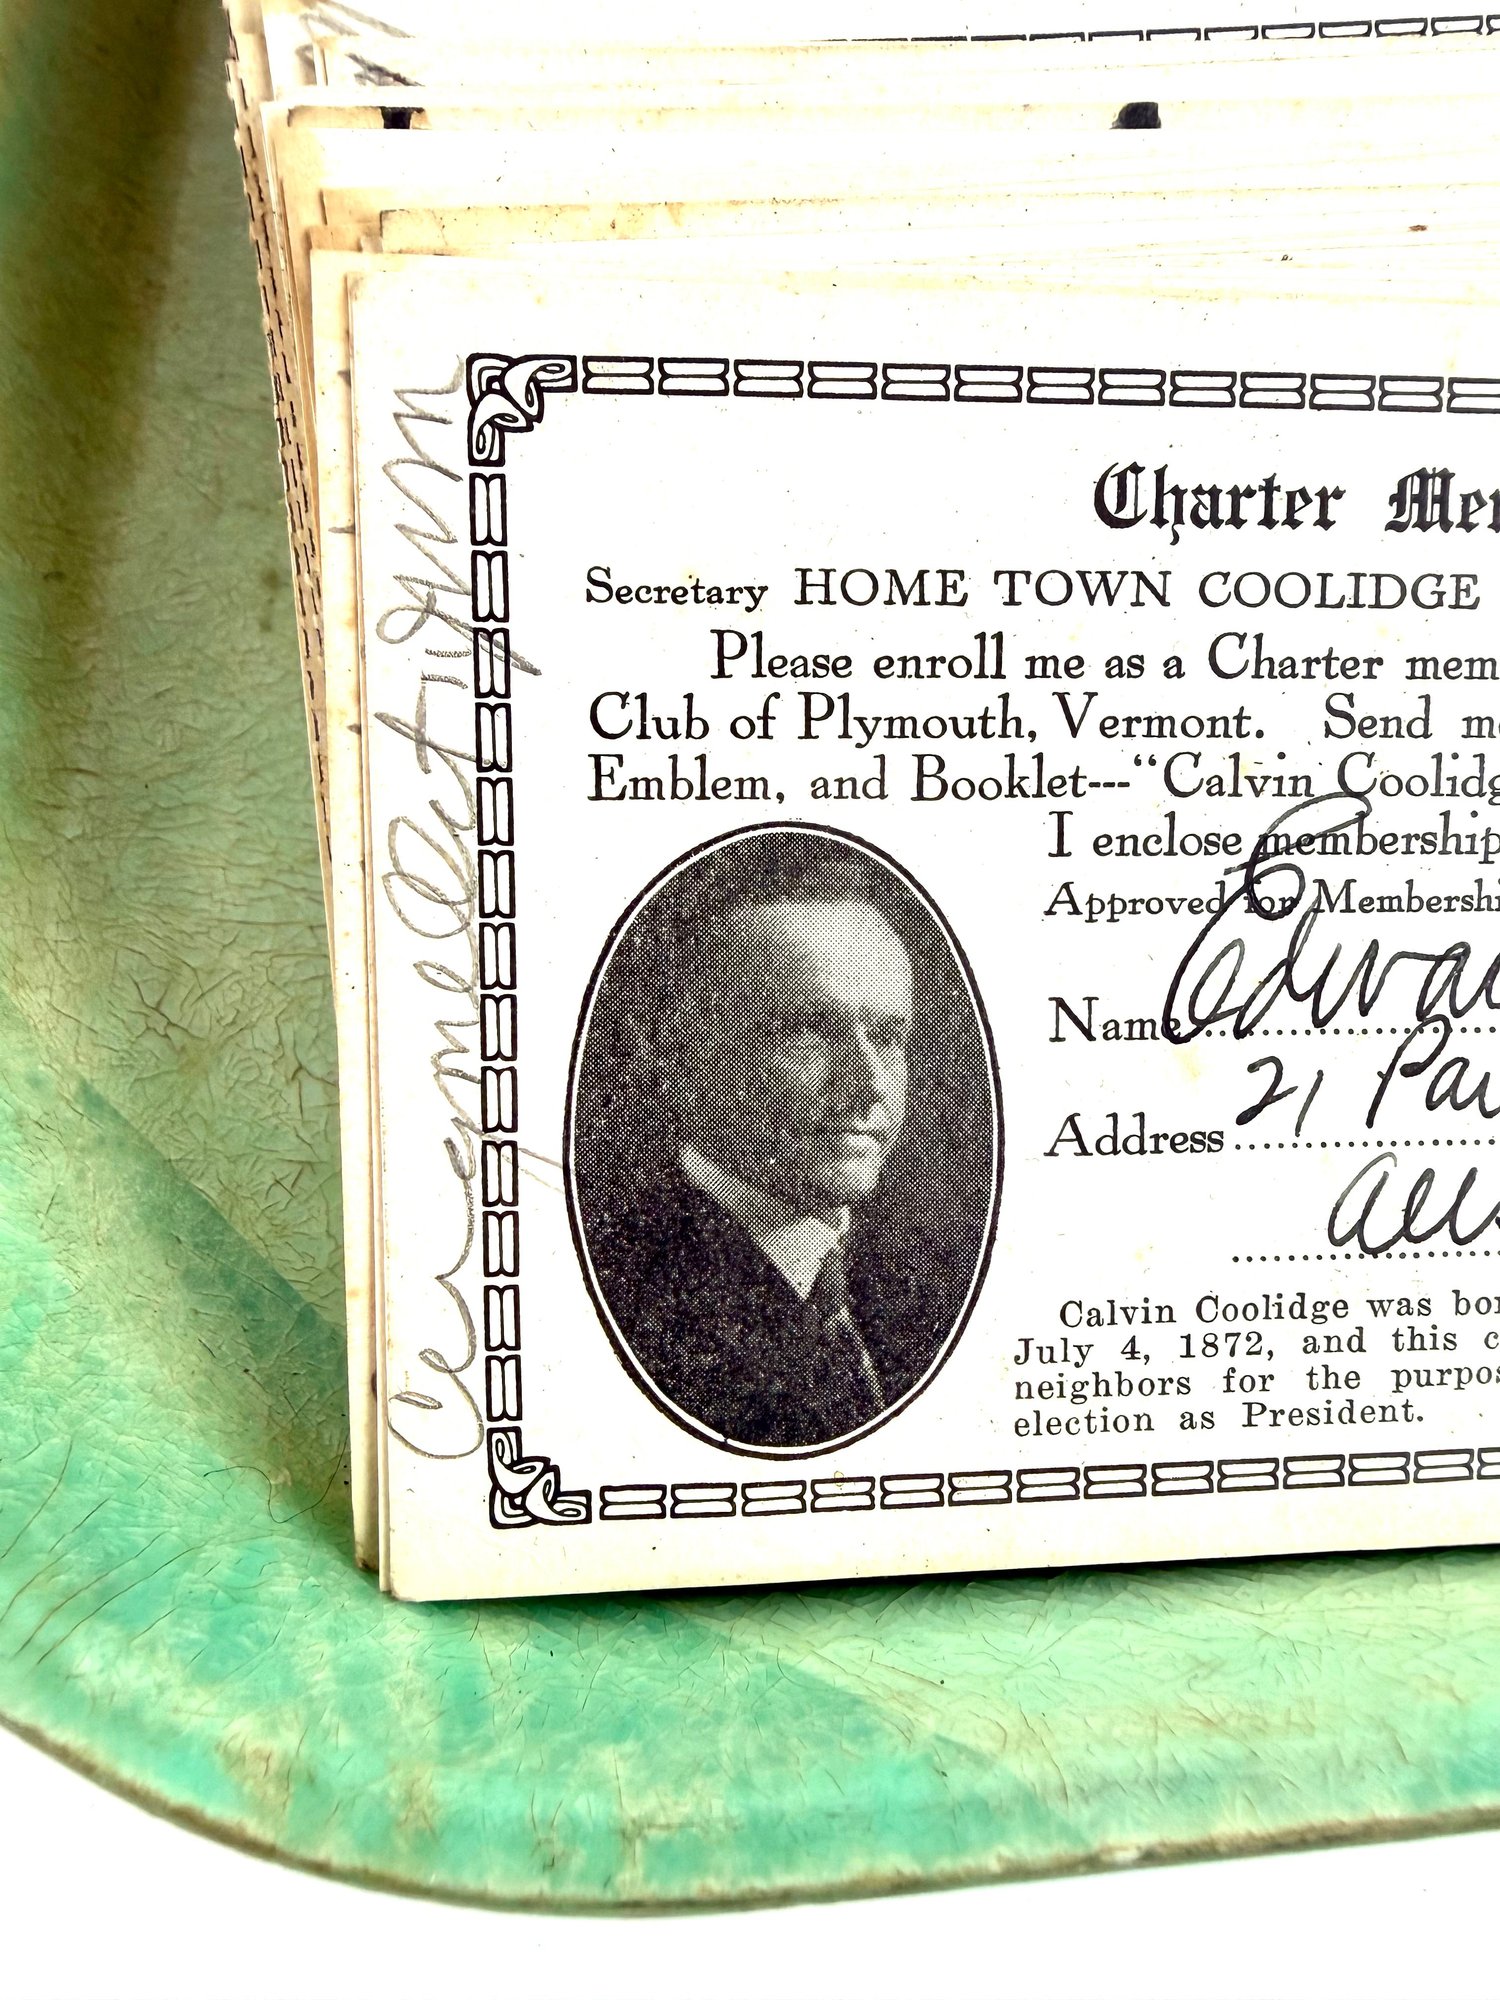 Charter Mem
Secretary HOME TOWN COOLIDGE
Please enroll me as a Charter mem
Club of Plymouth, Vermont. Send me
Emblem, and Booklet---"Calvin Coolidg
I enclose membership
Approved for Membershi
Name Edwar
Address 21 Par
Calvin Coolidge was bor
July 4, 1872, and this c
neighbors for the purpos
election as President.